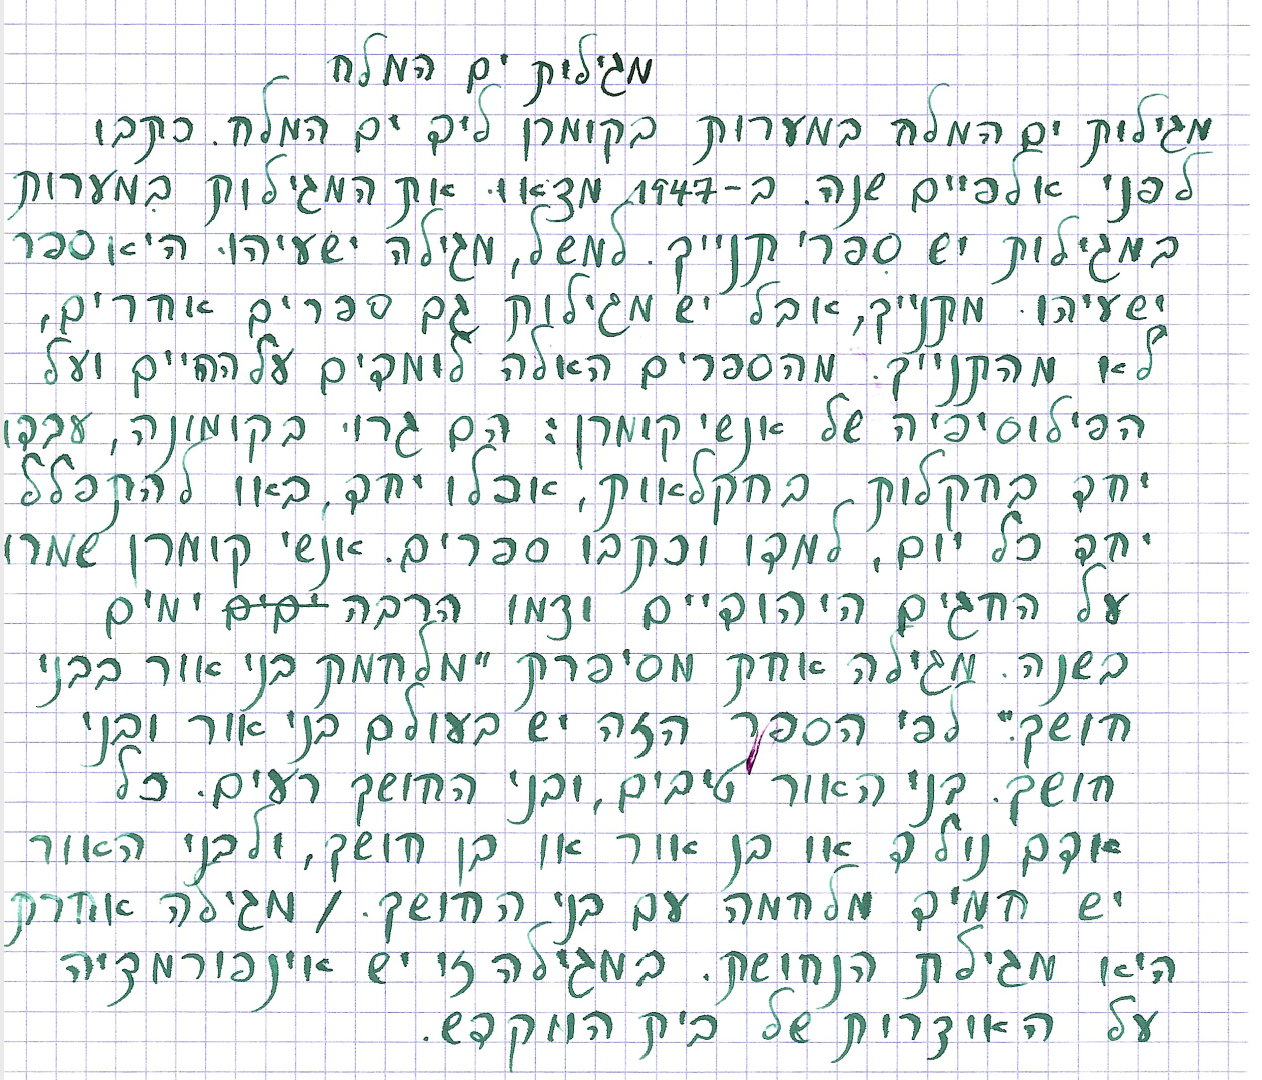 מגילות ים המלח
מגילות ים המלח במערות בקומרן ליד ים המלח. כתבו
לפני אלפיים שנה. ב-1947 מצאו את המגילות במערות
במגילות יש ספרי תנייך. למשל, מגילה ישעיהו היא ספר
ישעיהו מתנייך, אבל יש מגילות גם ספרים אחרים,
לא מהתנייך. מהספרים האלה לומדים על החיים ועל
הפילוסיפיה של אנשי קומרן: הם גרו בקומונה, עבדו
יחד בחקלות בחקלאות, אכלו יחד, באו להתפלל
יחד כל יום, למדו וכתבו ספרים. אנשי קומרן שמרו
על החגים היהודיים וצמו הרבה ימים ימים
בשנה. מגילה אחת מסיפרת "מלחמת בני אור בבני
חושך". לפי הספר הזה יש בעולם בני אור ובני
חושך. בני האור טיבים, ובני החושך רעים. כל
אדם נולד או בן אור או בן חושך, ולבני האור
יש תמיד מלחמה עם בני החושך. / מגילה אחרת
היא מגילת הנחושת. במגילה זו יש אינפורמציה
על האוצרות של בית המקדש.